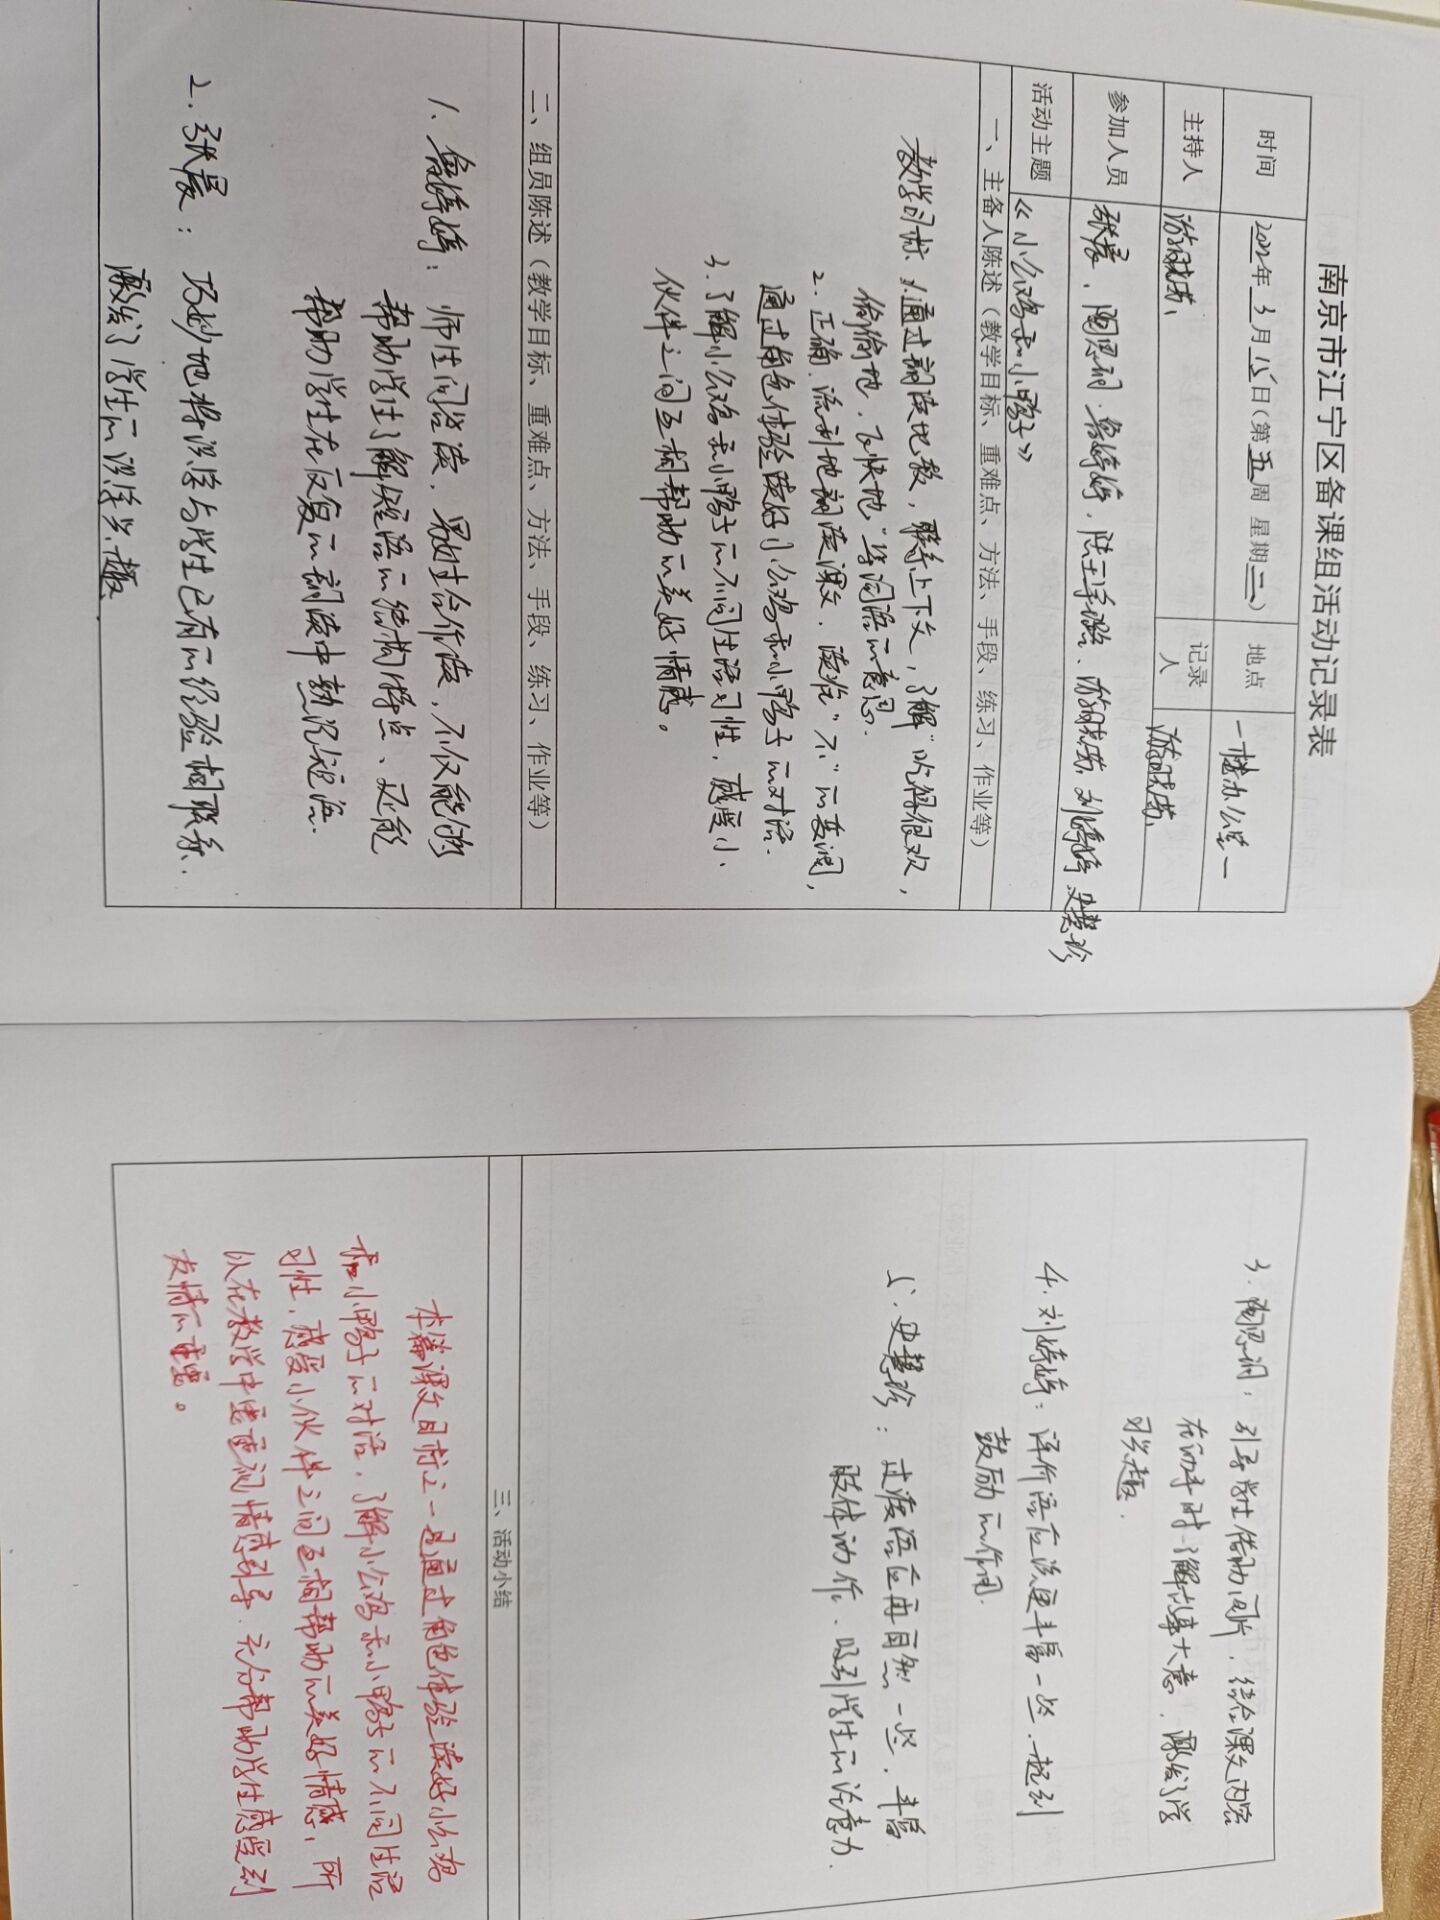 南京市江宁区备课组活动记录表
时间 2022年3月15日(第五周 星期二) 地点 一楼办公室一
主持人 记录人
参加人员 张晨、陶思润、鲁婷婷、刘婷婷 史慧珍
活动主题 《小公鸡和小鸭子》
一、主备人陈述（教学目标、重难点、方法、手段、练习、作业等）
教学目标 1.通过朗读比较，联系上下文，了解“吃得很欢，
偷偷地，飞快地”等词语的意思.
2.正确、流利地朗读课文，读准“不”的变调，
通过角色体验读好小公鸡和小鸭子的对话.
3.了解小公鸡和小鸭子的不同生活习性，感受小
伙伴之间互相帮助的美好情感。
二、组员陈述（教学目标、重难点、方法、手段、练习、作业等）
1.鲁婷婷：师生问答读，男女生合作读，不仅能够
帮助学生了解短语的结构特点、还能
帮助学生在反复的朗读中熟识短语.
2.张晨：巧妙地将识字与学生已有的经验相联系.
激发了学生的识字兴趣
3.陶思润：引导学生借助图片，结合课文内容
在动手时了解故事大意，激发了学
习兴趣.
4.刘婷婷：评价语应该更丰富一些，起到
鼓励的作用.
5.史慧珍：过渡语应再自然一些，丰富
肢体动作，吸引学生的注意力.
三、活动小结
本篇课文目标之一是通过角色体验读好小公鸡
和小鸭子的对话，了解小公鸡和小鸭子的不同生活
习性，感受小伙伴之间互相帮助的美好情感，所
以在教学中要重视情感引导，充分帮助学生感受到
友情的重要。